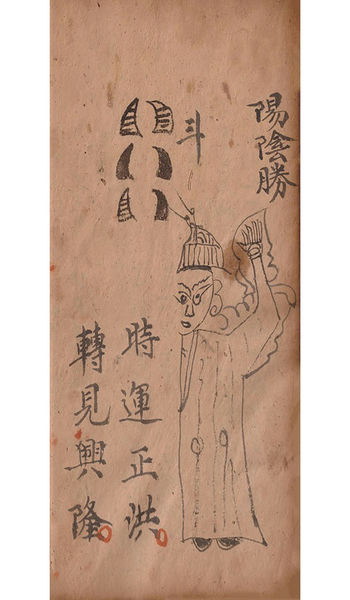 陽陰勝
斗
時運正洪
轉見興隆